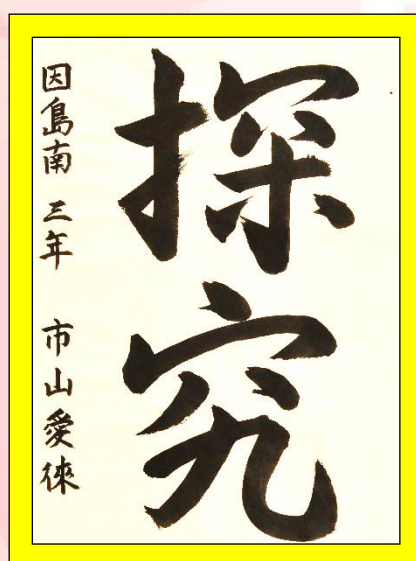 探究
因島南 三年 市山愛徠